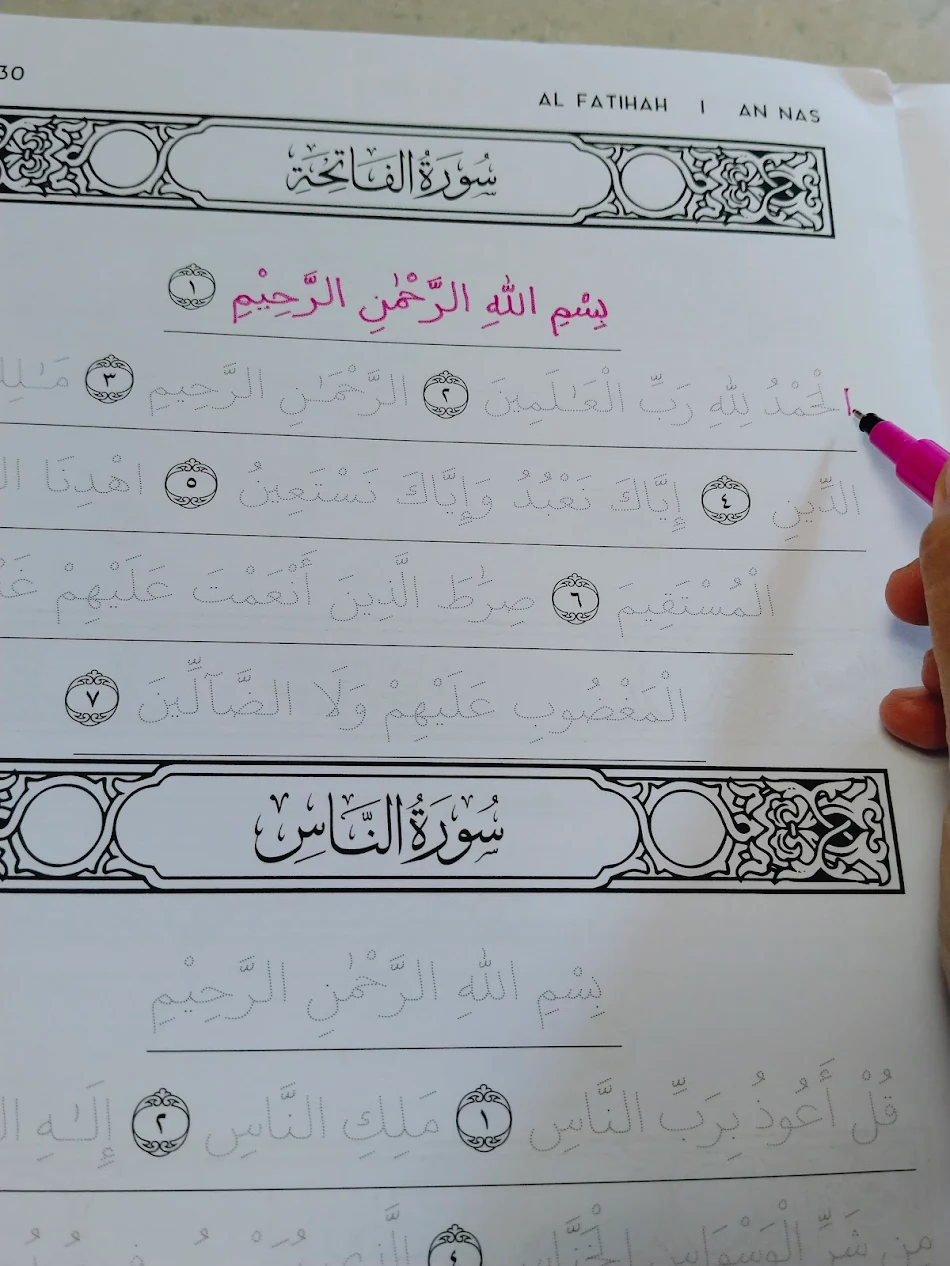 30
AL FATIHAH | AN NAS
سُورَةُ الْفَاتِحَةِ
بِسْمِ اللّٰهِ الرَّحْمٰنِ الرَّحِيْمِ ١
الْحَمْدُ لِلّٰهِ رَبِّ الْعَـٰلَمِينَ ٢ الرَّحْمَـٰنِ الرَّحِيمِ ٣ مَـٰلِكِ
الدِّينِ ٤ إِيَّاكَ نَعْبُدُ وَإِيَّاكَ نَسْتَعِينُ ٥ اهْدِنَا
الْمُسْتَقِيمَ ٦ صِرَٰطَ الَّذِينَ أَنْعَمْتَ عَلَيْهِمْ
الْمَغْضُوبِ عَلَيْهِمْ وَلَا الضَّآلِّينَ ٧
سُورَةُ النَّاسِ
بِسْمِ اللّٰهِ الرَّحْمٰنِ الرَّحِيْمِ
قُلْ أَعُوذُ بِرَبِّ النَّاسِ ١ مَلِكِ النَّاسِ ٢ إِلَـٰهِ
مِن شَرِّ الْوَسْوَاسِ الْخَنَّاسِ ٤